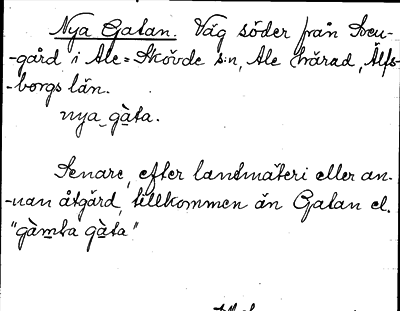 Nya Gatan. Väg söder från Sven-
-gård i Ale-Skövde s:n, Ale härad, Älfs-
-borgs län.
nya gàta.
Senare, efter landtmäteri eller an-
-nan åtgärd, tillkommen än Gatan el.
"gàmba gàta"